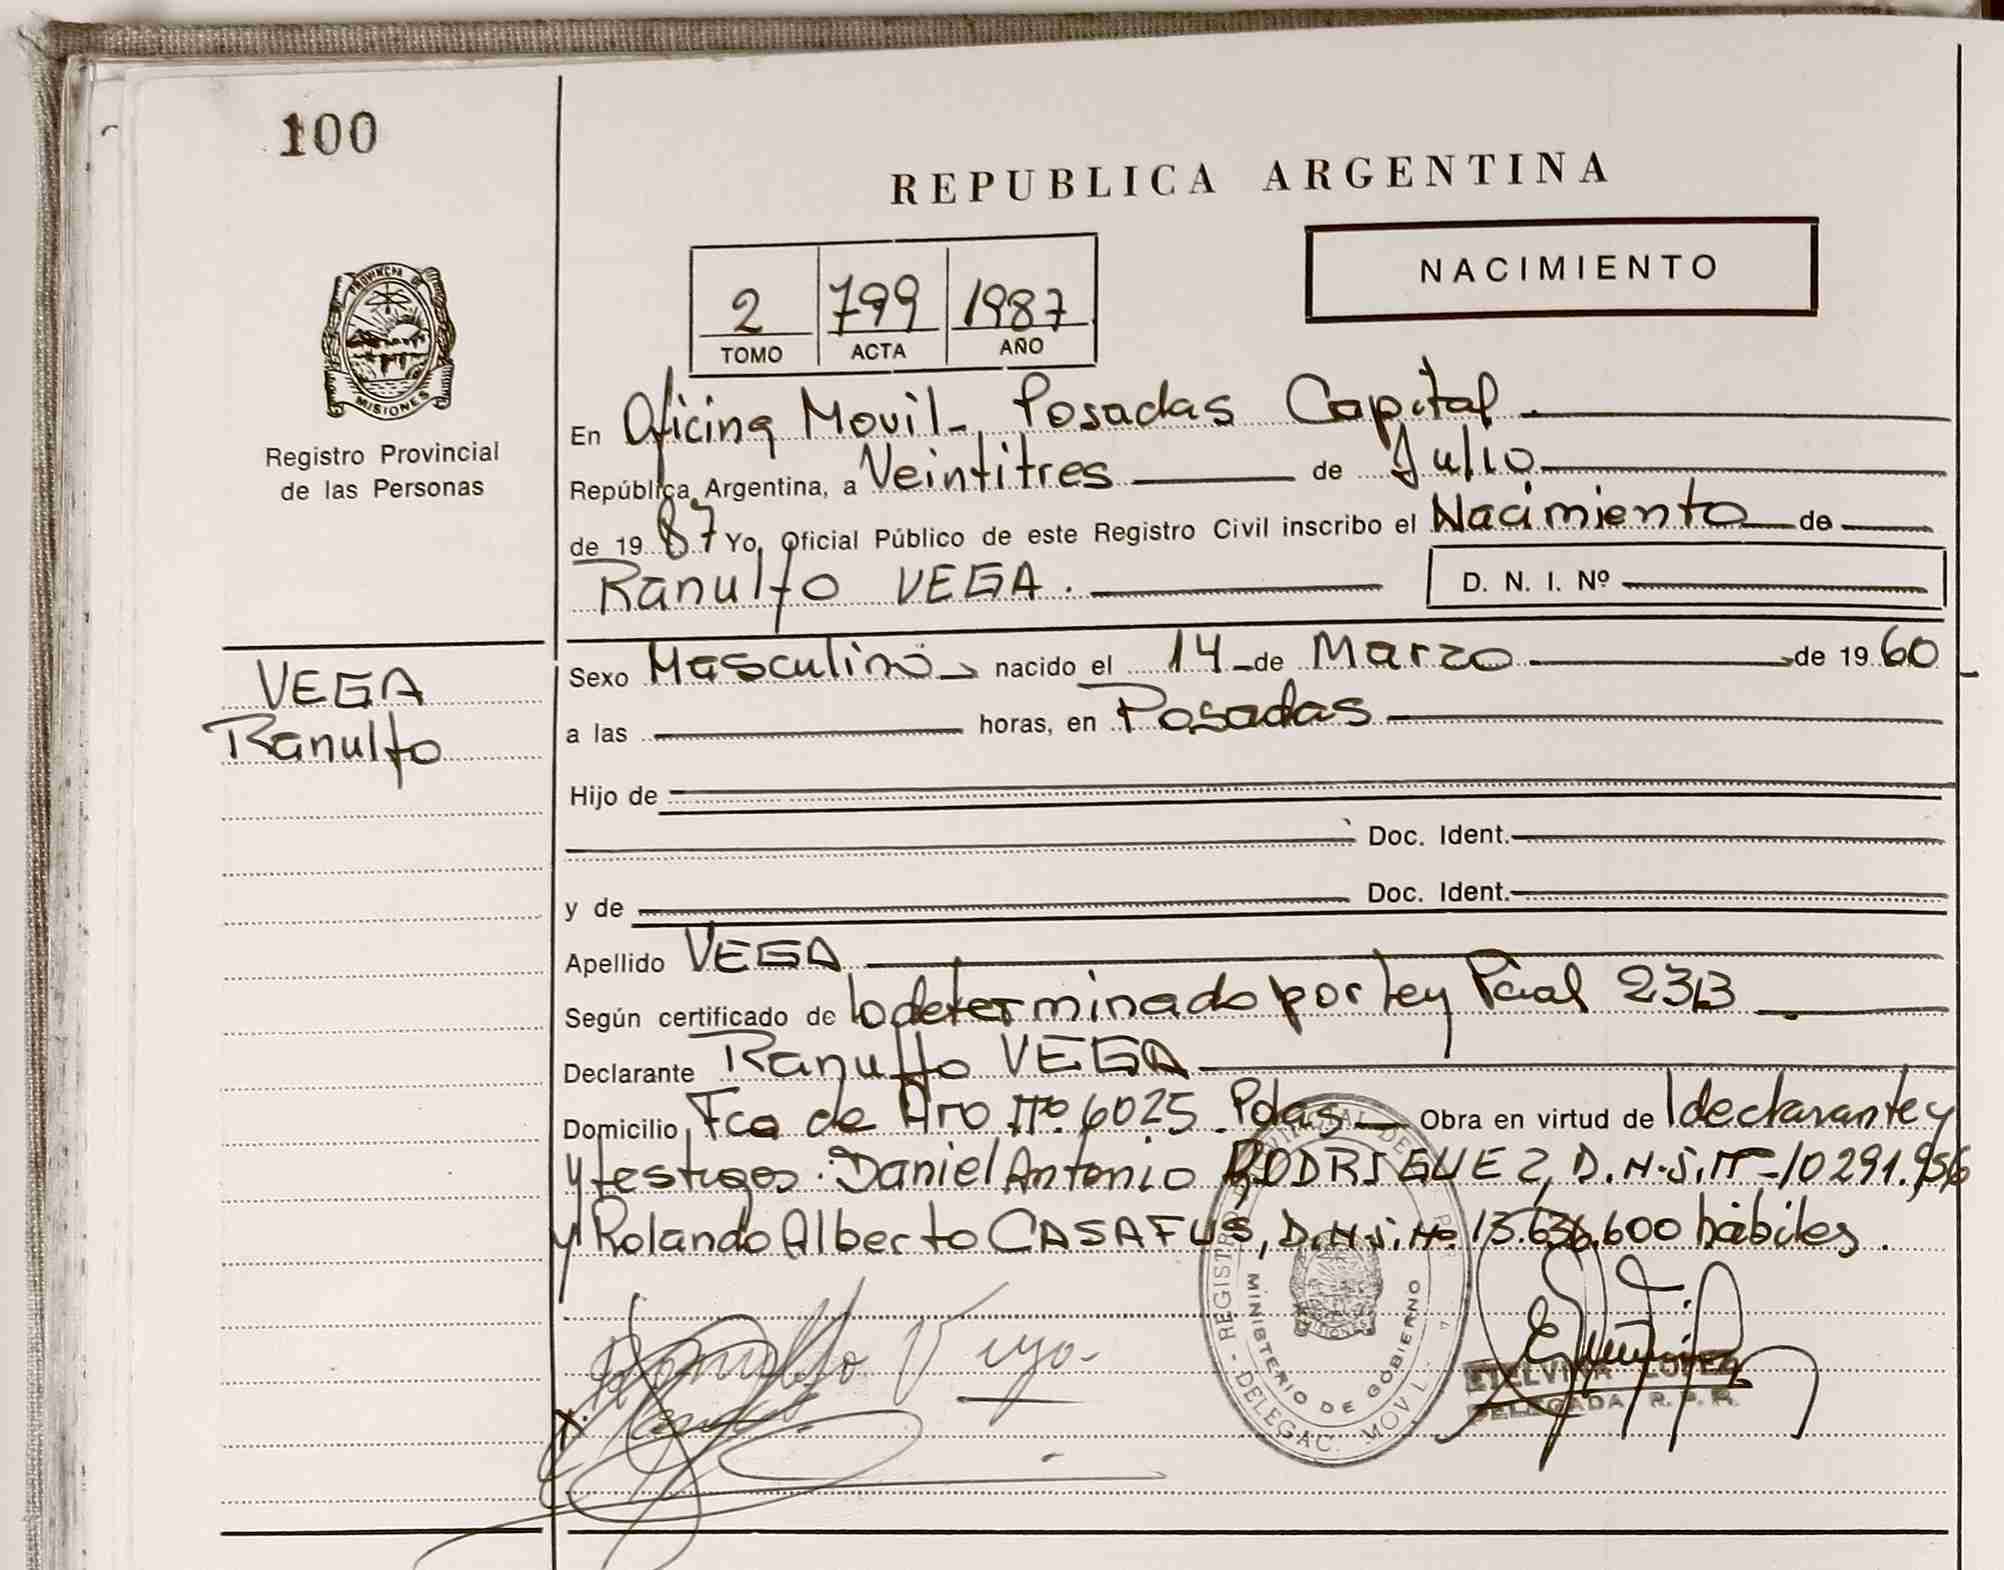 100
REPUBLICA ARGENTINA
NACIMIENTO
2 799 1987
TOMO ACTA AÑO
PROVINCIA DE
MISIONES
Registro Provincial
de las Personas
En Oficina Movil - Posadas Capital
República Argentina, a Veintitres de Julio
de 1987 Yo, Oficial Público de este Registro Civil inscribo el Nacimiento de
Ranulfo VEGA.
D. N. I. Nº
VEGA
Ranulfo
Sexo Masculino nacido el 14 de Marzo de 1960
a las horas, en Posadas
Hijo de
Doc. Ident.
y de Doc. Ident.
Apellido VEGA
Según certificado de lo determinado por Ley Pcial 2313
Declarante Ranulfo VEGA
Domicilio Fca de Aro Nº 6025 Pdas Obra en virtud de l declarante y
y testigos: Daniel Antonio RODRIGUEZ, D.N.I. Nº 10291.956
y Rolando Alberto CASAFUS, D.N.I. Nº 13.636.600 hábiles.
Ranulfo Vega
REGISTRO PROVINCIAL DE
MINISTERIO DE GOBIERNO
- DELEGAC. MOVIL
ETELVINA LOPEZ
DELEGADA R. P. P.